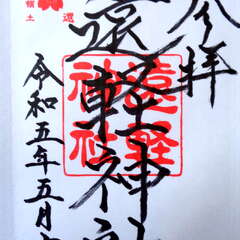 奉拝
遠軽神社
遠軽
神社
還
領土
令和五年五月